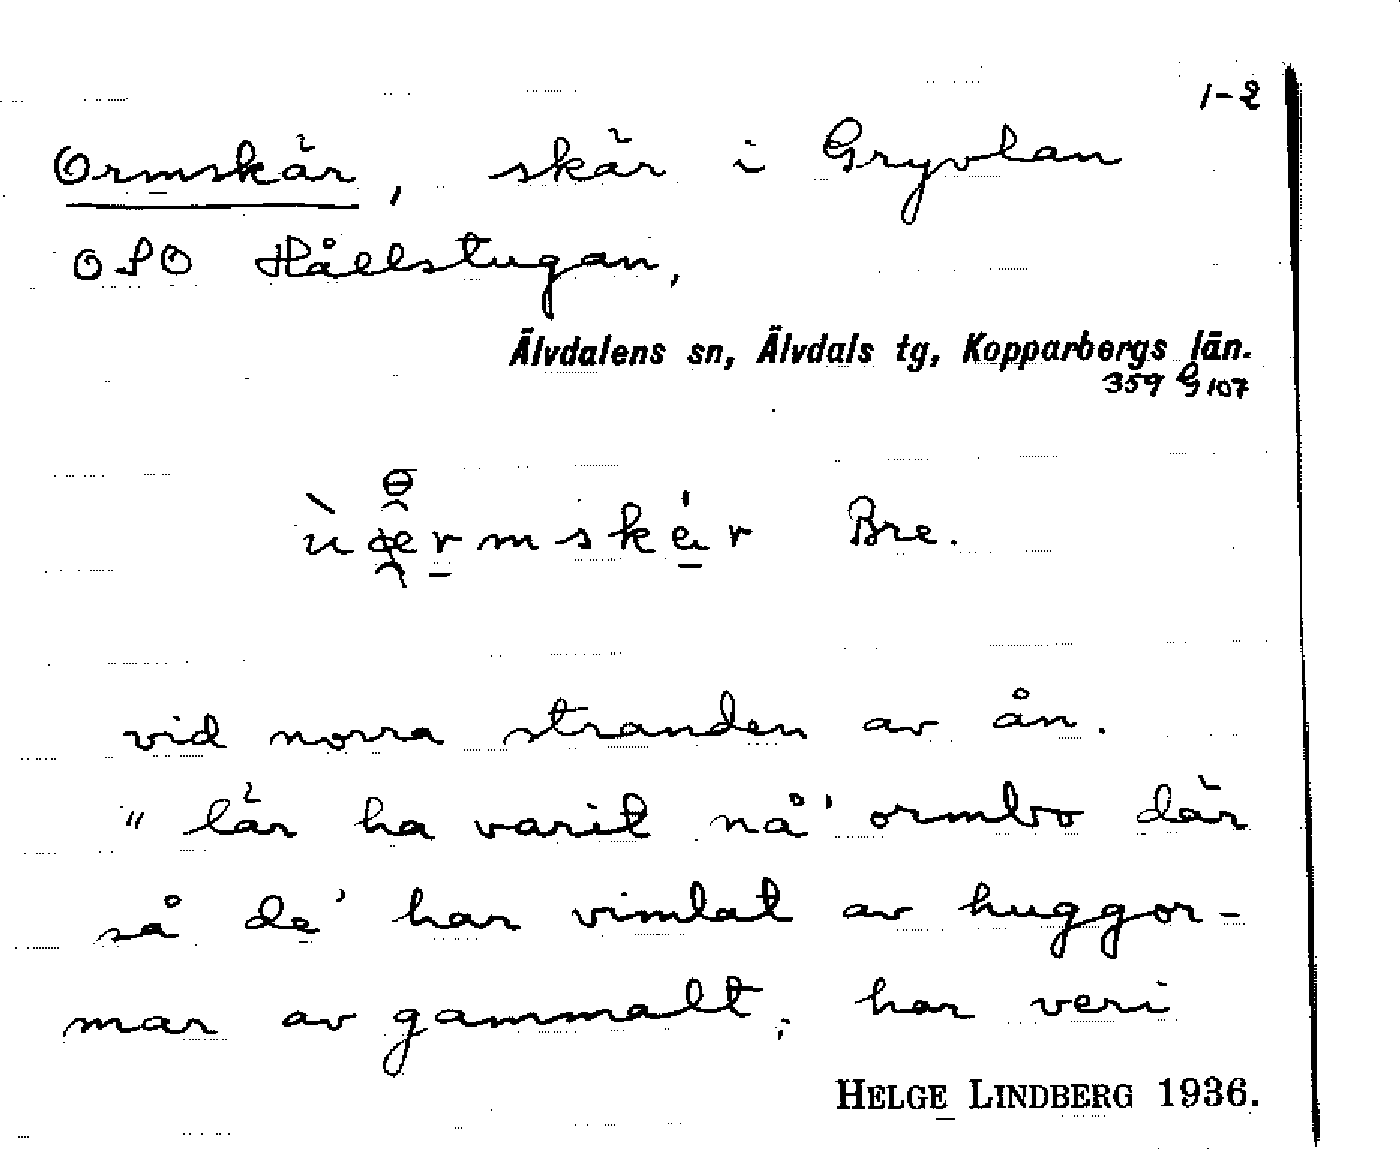 1-2
Ormskär, skär i Gryvlan
OSO Hållstugan,
Älvdalens sn, Älvdals tg, Kopparbergs län.
359 G 107
Bre.
vid norra stranden av ån.
"lär ha varit nå' ormbo där
så de' har vimlat av huggor-
mar av gammalt, har veri
HELGE LINDBERG 1936.